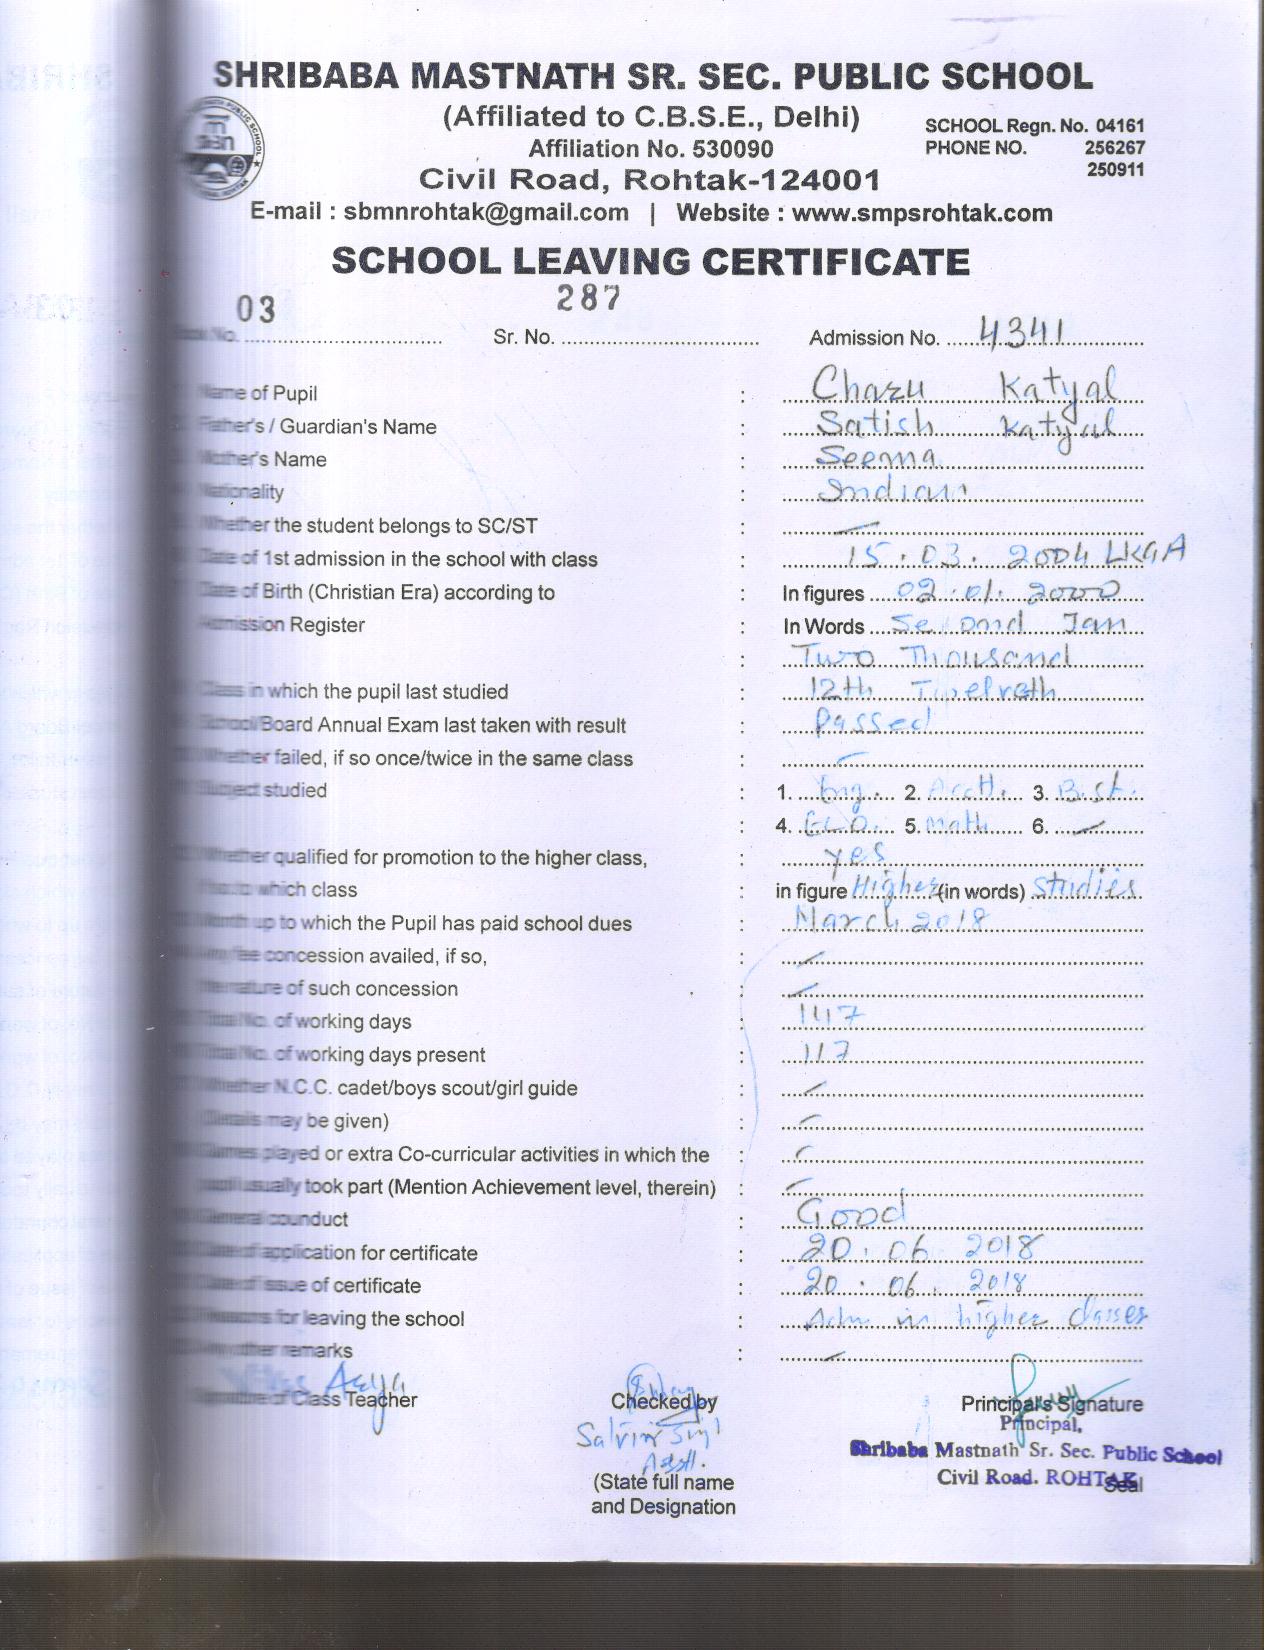 SHRIBABA MASTNATH SR. SEC. PUBLIC SCHOOL
(Affiliated to C.B.S.E., Delhi)
SCHOOL Regn. No. 04161
Affiliation No. 530090
PHONE NO. 256267
250911
Civil Road, Rohtak-124001
E-mail : sbmnrohtak@gmail.com | Website : www.smpsrohtak.com
SCHOOL LEAVING CERTIFICATE
Book No. 03 Sr. No. 287 Admission No. 4341
Name of Pupil : Charu Katyal
Father's / Guardian's Name : Satish Katyal
Mother's Name : Seema
Nationality : Indian
Whether the student belongs to SC/ST : —
Date of 1st admission in the school with class : 15.03.2004 LKG A
Date of Birth (Christian Era) according to : In figures 02.01.2000
Admission Register : In Words Second Jan
: Two Thousand
Class in which the pupil last studied : 12th
School/Board Annual Exam last taken with result : Passed
Whether failed, if so once/twice in the same class : —
Subject studied : 1. Eng. 2. Acctt. 3. B.st.
: 4. Eco. 5. Math 6. —
Whether qualified for promotion to the higher class, : Yes
if so to which class : in figure Higher (in words) Studies
Month up to which the Pupil has paid school dues : March 2018
Any fee concession availed, if so, : —
the nature of such concession : —
Total No. of working days : 147
Total No. of working days present : 117
Whether N.C.C. cadet/boys scout/girl guide : —
(Details may be given) : —
Games played or extra Co-curricular activities in which the : —
pupil usually took part (Mention Achievement level, therein) : —
General counduct : Good
Date of application for certificate : 20.06.2018
Date of issue of certificate : 20.06.2018
Reasons for leaving the school : Adm in higher classes
Any other remarks : —
Signature of Class Teacher Checked by Principal's Signature
Principal,
Shribaba Mastnath Sr. Sec. Public School
Civil Road. ROHTAK
Seal
(State full name
and Designation